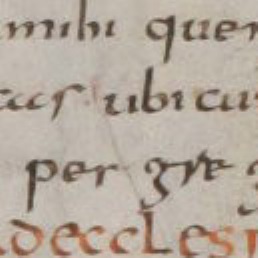 mihi quer
cus ubi cu
per gre g
decclesi